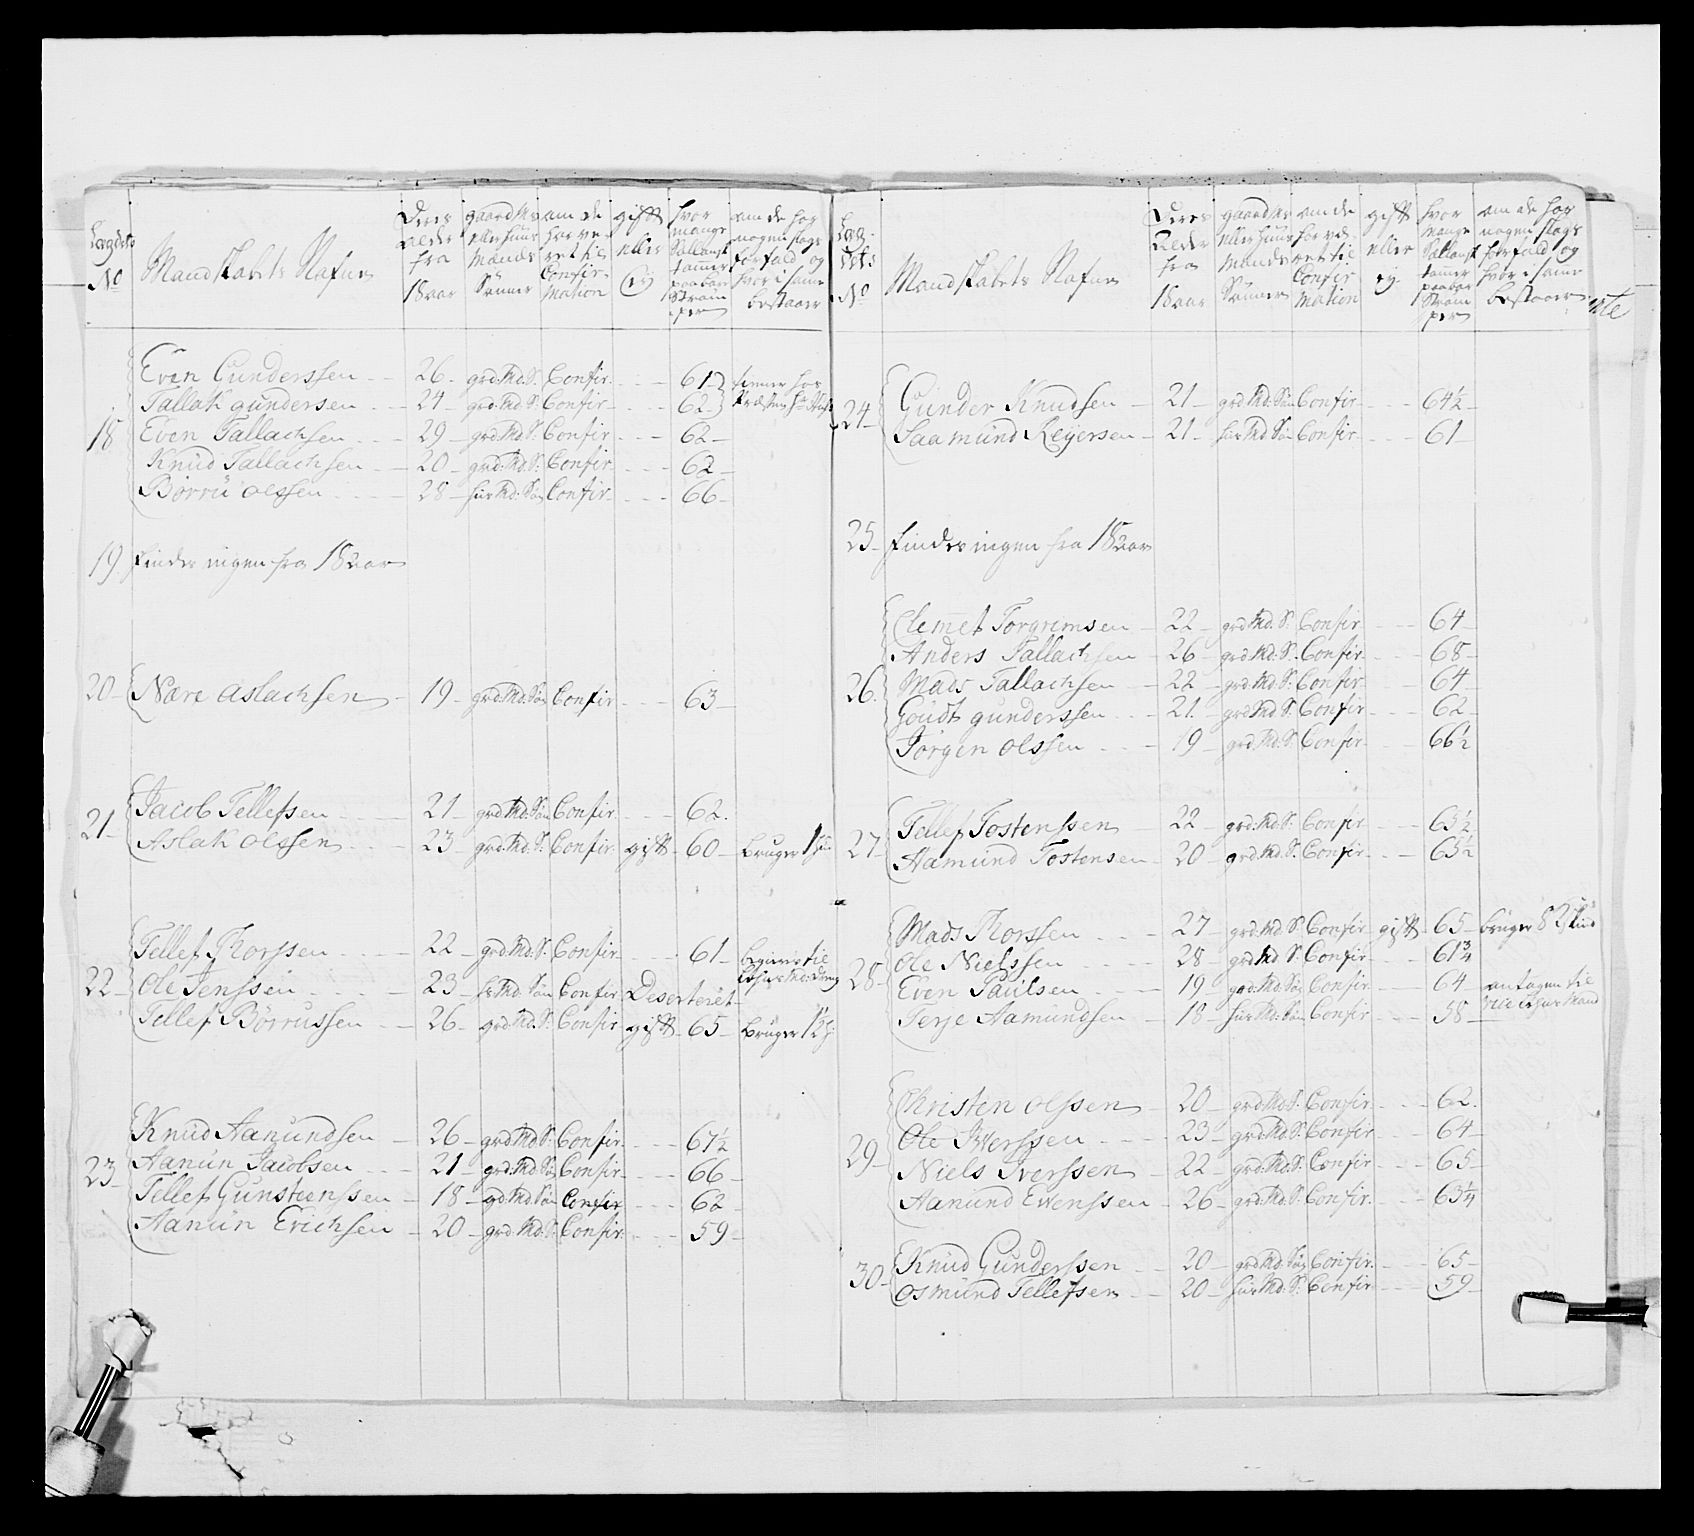 Lægdets No
Mandskabets Nafne
Deres Alder fra 18 aar
gaardMs eller huus Mands Sønner
om de har været til Confirmation
gift eller Ey
hvor mange Sællansk tommer paa bare Strømper
om de har nogen slags forfald og hvor i same bestaaer
18
Even Gunderssen 26 grd: Md: S: Confir 61 tienner hos
Tallak gundersen 24 grd: Md: S: Confir 62 Præsten
Even Tallachsen 29 grd: Md: S: Confir 62
Knud Tallachsen 20 grd: Md: S: Confir 62
Børru olssen 28 huus Md: Søn Confir 66
19 findes ingen fra 18 aar
20 Nære Aslachsen 19 grd: Md: Søn Confir 63
21
Jacob Tellefsen 21 grd: Md: Søn Confir 62
Aslak olssen 23 grd: Md: S: Confir gift 60 Bruger 1
22
Tellef Thorssen 22 grd: Md: S: Confir 61 begierer til
Ole Jenssen 23 hs Md: Søn Confir Deserteret
Tellef Børrussen 26 grd: Md: S: Confir gift 65 Bruger 1½
23
Knud Aanundsen 26 grd: Md: S: Confir 67½
Aanun Jacobsen 21 grd: Md: Søn Confir 66
Tellef Gunstienssen 18 gd: Md: Søn Confir 62
Aanun Erichsen 20 grd: Md: S: Confir 59
Lægdets No
Mandskabets Nafne
Deres Alder fra 18 aar
gaardMs eller huus Mands Sønner
om de har været til Confirmation
gift eller ey
hvor mange Sællansk tommer paa bar Strømper
om de har nogen slags forfald og hvor i same bestaaer
24
Gunder Knudsen 21 grd: Md: Søn Confir 64½
Saamund Reyersen 21 huus Md Søn Confir 61
25 findes ingen fra 18 aar
26
Clemet Torgremsen 22 grd Md: S: Confir 64
Anders Tallachsen 26 grd: Md: S: Confir 68
Mads Tallachsen 22 grd: Md: S: Confir 64
Goudt gunderssen 21 grd Md S: Confir 62
Jørgen olssen 19 grd: Md: S: Confir 66½
27
Tellef Tostenssen 22 grd: Md: S: Confir 63½
Aamund Tostensen 20 grd: Md: S: Confir 65½
28
Mads Thorssen 27 grd: Md S: Confir gift 65 bruger
Ole Nielssen 28 grd Md S: Confir 61¾
Even Paulsen 19 grd: Md: Søn Confir 64 antagen til
Terje Aamundsen 18 huus Md: Søn Confir 58
29
Christen olssen 20 grd: Md: S: Confir 62
Ole Iverssen 23 grd: Md: S: Confir 64
Niels Iverssen 22 grd: Md: S: Confir 65
Aanund Evenssen 26 grd: Md: S: Confir 63¼
30
Knud Gunderssen 20 grd: Md: Søn Confir 65
osmund Tellefsen 20 huus Md: S: Confir 59